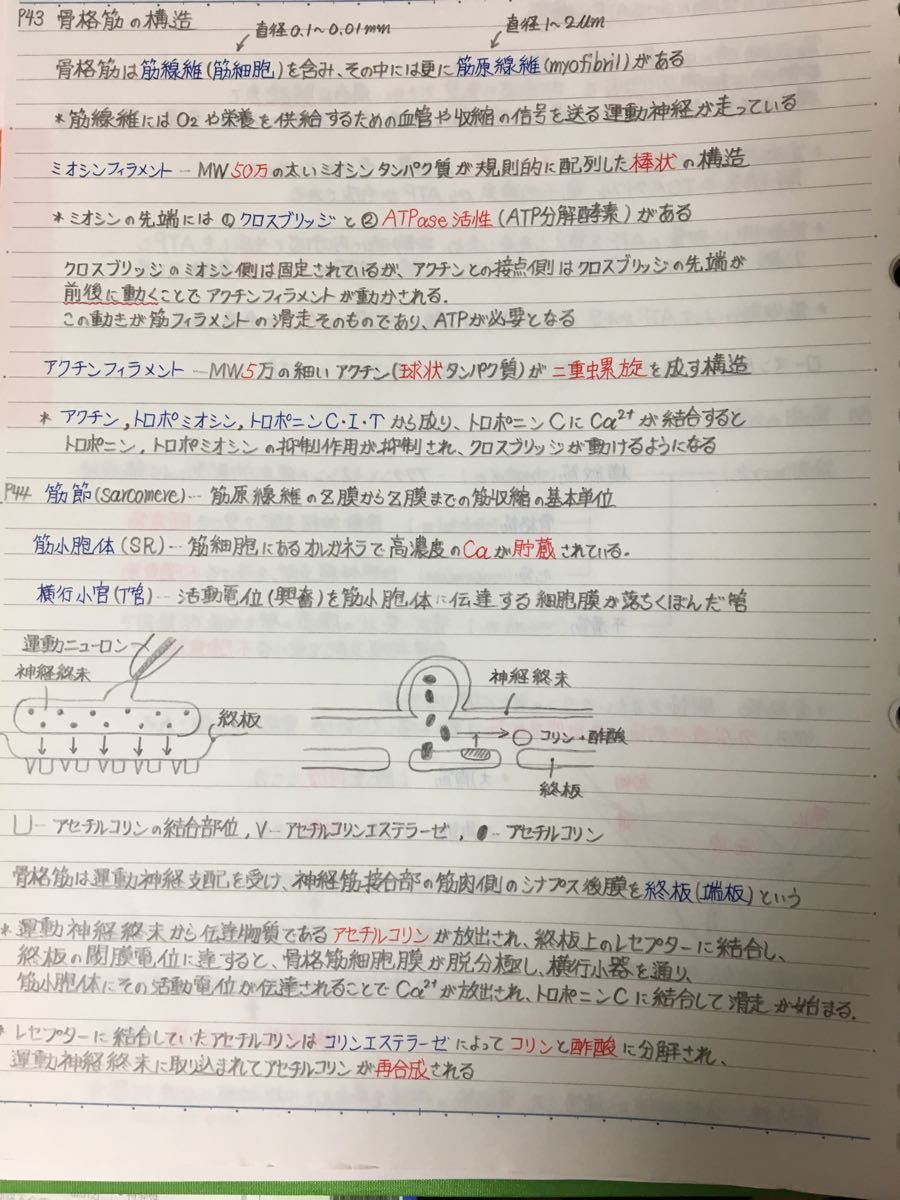 P43 骨格筋の構造
直径0.1~0.01mm
直径1~2μm
骨格筋は筋線維(筋細胞)を含み、その中には更に筋原線維(myofibril)がある
*筋線維にはO₂や栄養を供給するための血管や収縮の信号を送る運動神経が走っている
ミオシンフィラメント…MW50万の太いミオシンタンパク質が規則的に配列した棒状の構造
*ミオシンの先端には①クロスブリッジと②ATPase活性(ATP分解酵素)がある
クロスブリッジのミオシン側は固定されているが、アクチンとの接点側はクロスブリッジの先端が
前後に動くことでアクチンフィラメントが動かされる.
この動きが筋フィラメントの滑走そのものであり、ATPが必要となる
アクチンフィラメント…MW5万の細いアクチン(球状タンパク質)が二重螺旋を成す構造
*アクチン,トロポミオシン,トロポニンC・I・Tから成り、トロポニンCにCa²⁺が結合すると
トロポニン,トロポミオシンの抑制作用が抑制され、クロスブリッジが動けるようになる
P44 筋節(sarcomere)…筋原線維のZ膜からZ膜までの筋収縮の基本単位
筋小胞体(SR)…筋細胞にあるオルガネラで高濃度のCaが貯蔵されている.
横行小官(T管)…活動電位(興奮)を筋小胞体に伝達する細胞膜が落ちくぼんだ管
運動ニューロン
神経終末
終板
神経終末
コリン+酢酸
終板
凵…アセチルコリンの結合部位,V…アセチルコリンエステラーゼ,●…アセチルコリン
骨格筋は運動神経支配を受け、神経筋接合部の筋肉側のシナプス後膜を終板(端板)という
*運動神経終末から伝達物質であるアセチルコリンが放出され、終板上のレセプターに結合し、
終板の閾膜電位に達すると、骨格筋細胞膜が脱分極し、横行小器を通り、
筋小胞体にその活動電位が伝達されることでCa²⁺が放出され、トロポニンCに結合して滑走が始まる.
*レセプターに結合していたアセチルコリンはコリンエステラーゼによってコリンと酢酸に分解され、
運動神経終末に取り込まれてアセチルコリンが再合成される